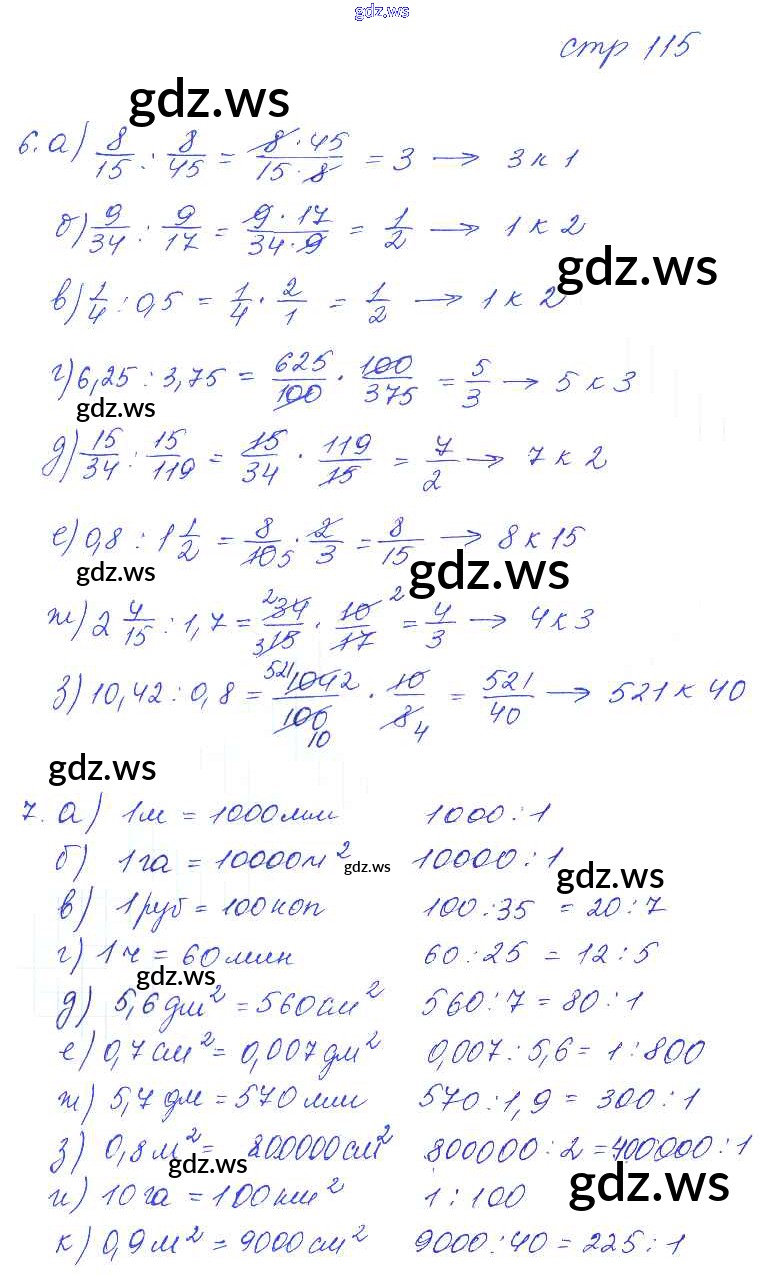 gdz.ws
стр 115
gdz.ws
6. а) 8/15 : 8/45 = 8·45/15·8 = 3 → 3 к 1
б) 9/34 : 9/17 = 9·17/34·9 = 1/2 → 1 к 2
gdz.ws
в) 1/4 : 0,5 = 1/4 · 2/1 = 1/2 → 1 к 2
г) 6,25 : 3,75 = 625/100 · 100/375 = 5/3 → 5 к 3
gdz.ws
д) 15/34 : 15/119 = 15/34 · 119/15 = 7/2 → 7 к 2
е) 0,8 : 1 1/2 = 8/10 5 · 2/3 = 8/15 → 8 к 15
gdz.ws gdz.ws
ж) 2 4/15 : 1,7 = 2 34/3 15 · 10 2/17 = 4/3 → 4 к 3
з) 10,42 : 0,8 = 521 1042/100 10 · 10/8 4 = 521/40 → 521 к 40
gdz.ws
7. а) 1м = 1000мм 1000 : 1
б) 1га = 10000м² 10000 : 1
gdz.ws gdz.ws
в) 1руб = 100коп 100 : 35 = 20 : 7
г) 1ч = 60мин 60 : 25 = 12 : 5
gdz.ws
д) 5,6дм² = 560см² 560 : 7 = 80 : 1
е) 0,7см² = 0,007дм² 0,007 : 5,6 = 1 : 800
ж) 5,7дм = 570мм 570 : 1,9 = 300 : 1
з) 0,8м² = 800000см² 800000 : 2 = 400000 : 1
gdz.ws gdz.ws
и) 10га = 100км² 1 : 100
к) 0,9м² = 9000см² 9000 : 40 = 225 : 1